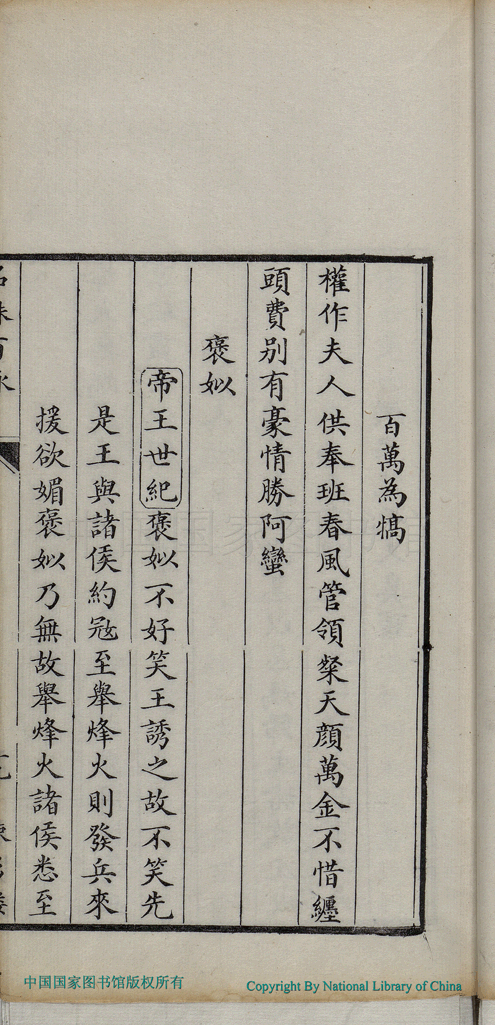 百萬為犒
權作夫人供奉班春風管領粲天顔萬金不惜纏
頭費别有豪情勝阿蠻
褒姒
帝王世紀褒姒不好笑王誘之故不笑先
是王與諸侯約冦至舉烽火則發兵來
援欲媚褒姒乃無故舉烽火諸侯悉至
中国国家图书馆版权所有
Copyright By National Library of China